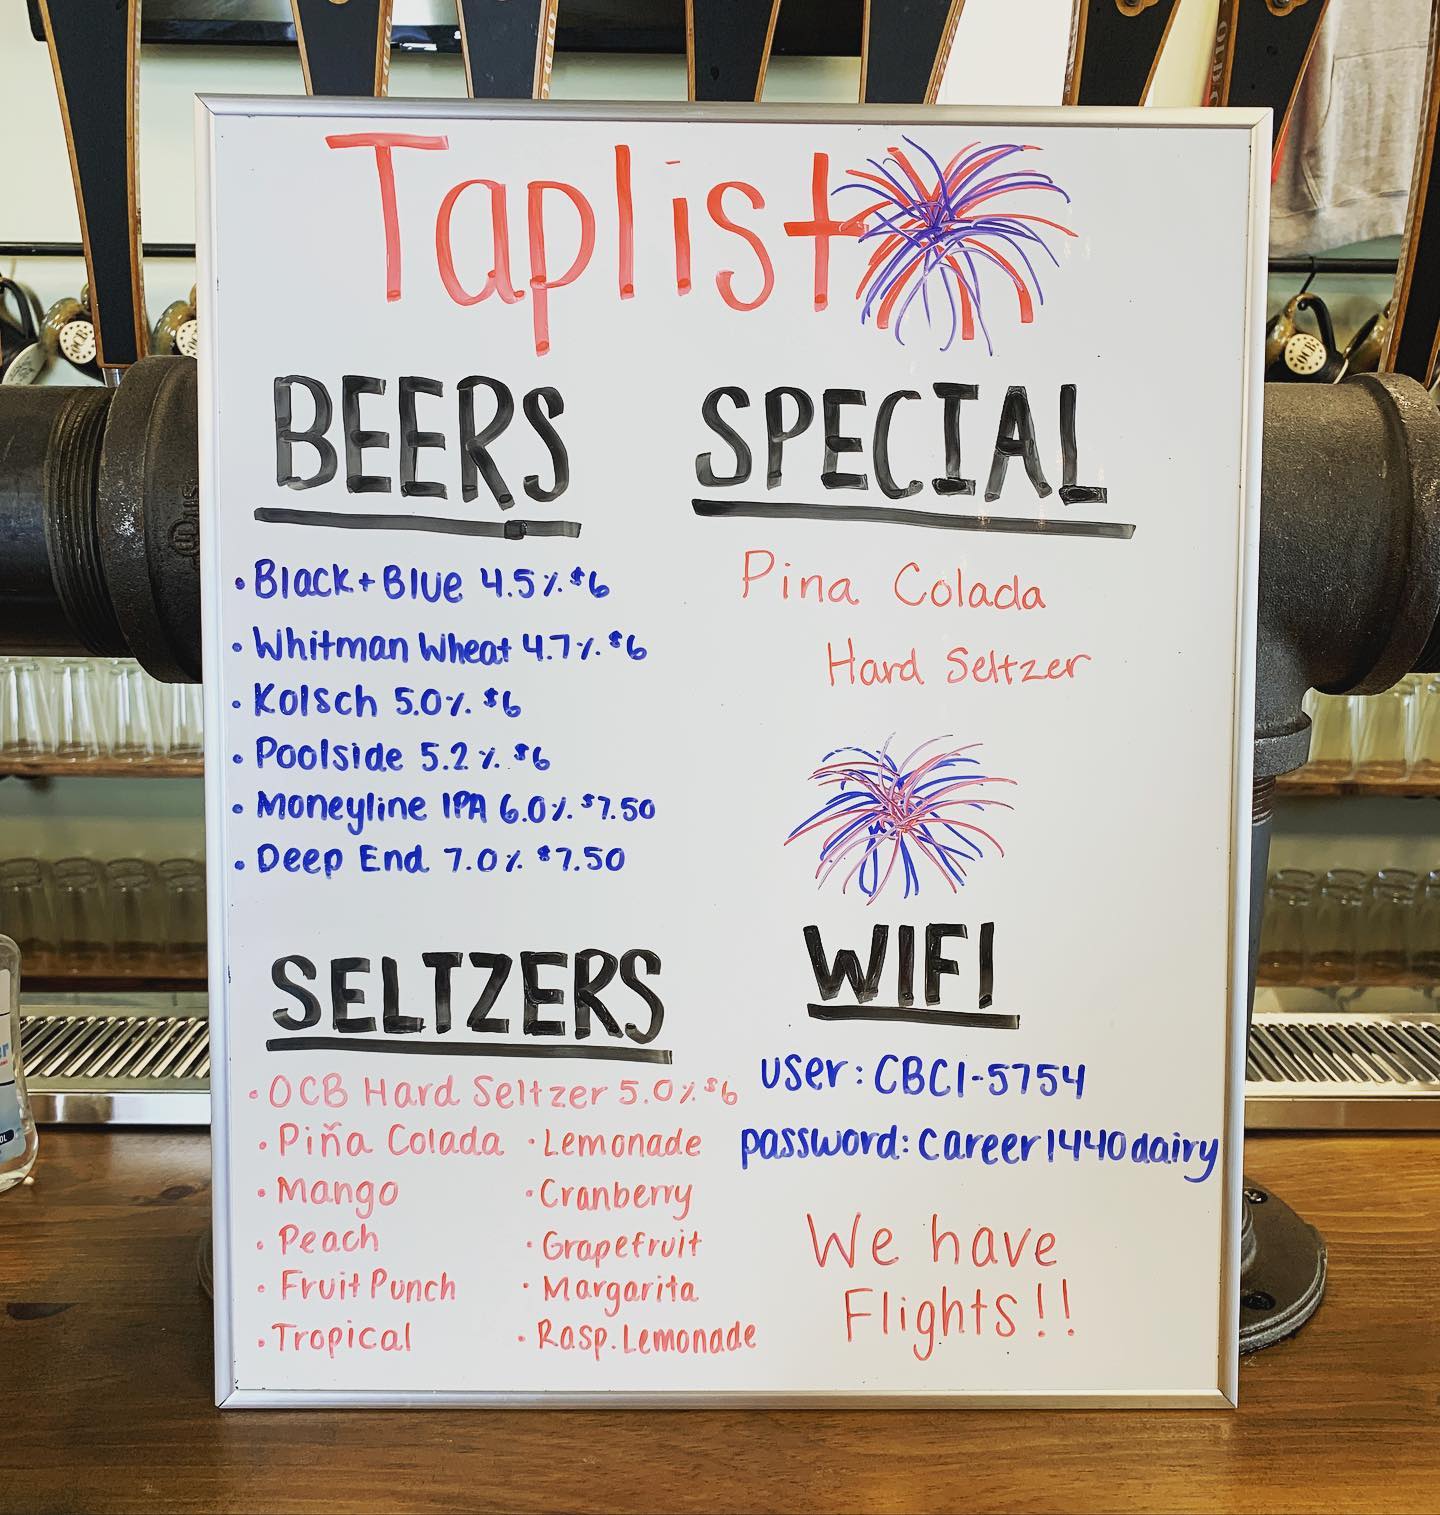 Taplist
BEERS
• Black + Blue 4.5% $6
• Whitman Wheat 4.7% $6
• Kolsch 5.0% $6
• Poolside 5.2% $6
• Moneyline IPA 6.0% $7.50
• Deep End 7.0% $7.50
SELTZERS
• OCB Hard Seltzer 5.0% $6
• Piña Colada • Lemonade
• Mango • Cranberry
• Peach • Grapefruit
• Fruit Punch • Margarita
• Tropical • Rasp. Lemonade
SPECIAL
Pina Colada
Hard Seltzer
WIFI
user: CBCI-5754
password: career1440dairy
We have
Flights!!
OCB
OCB